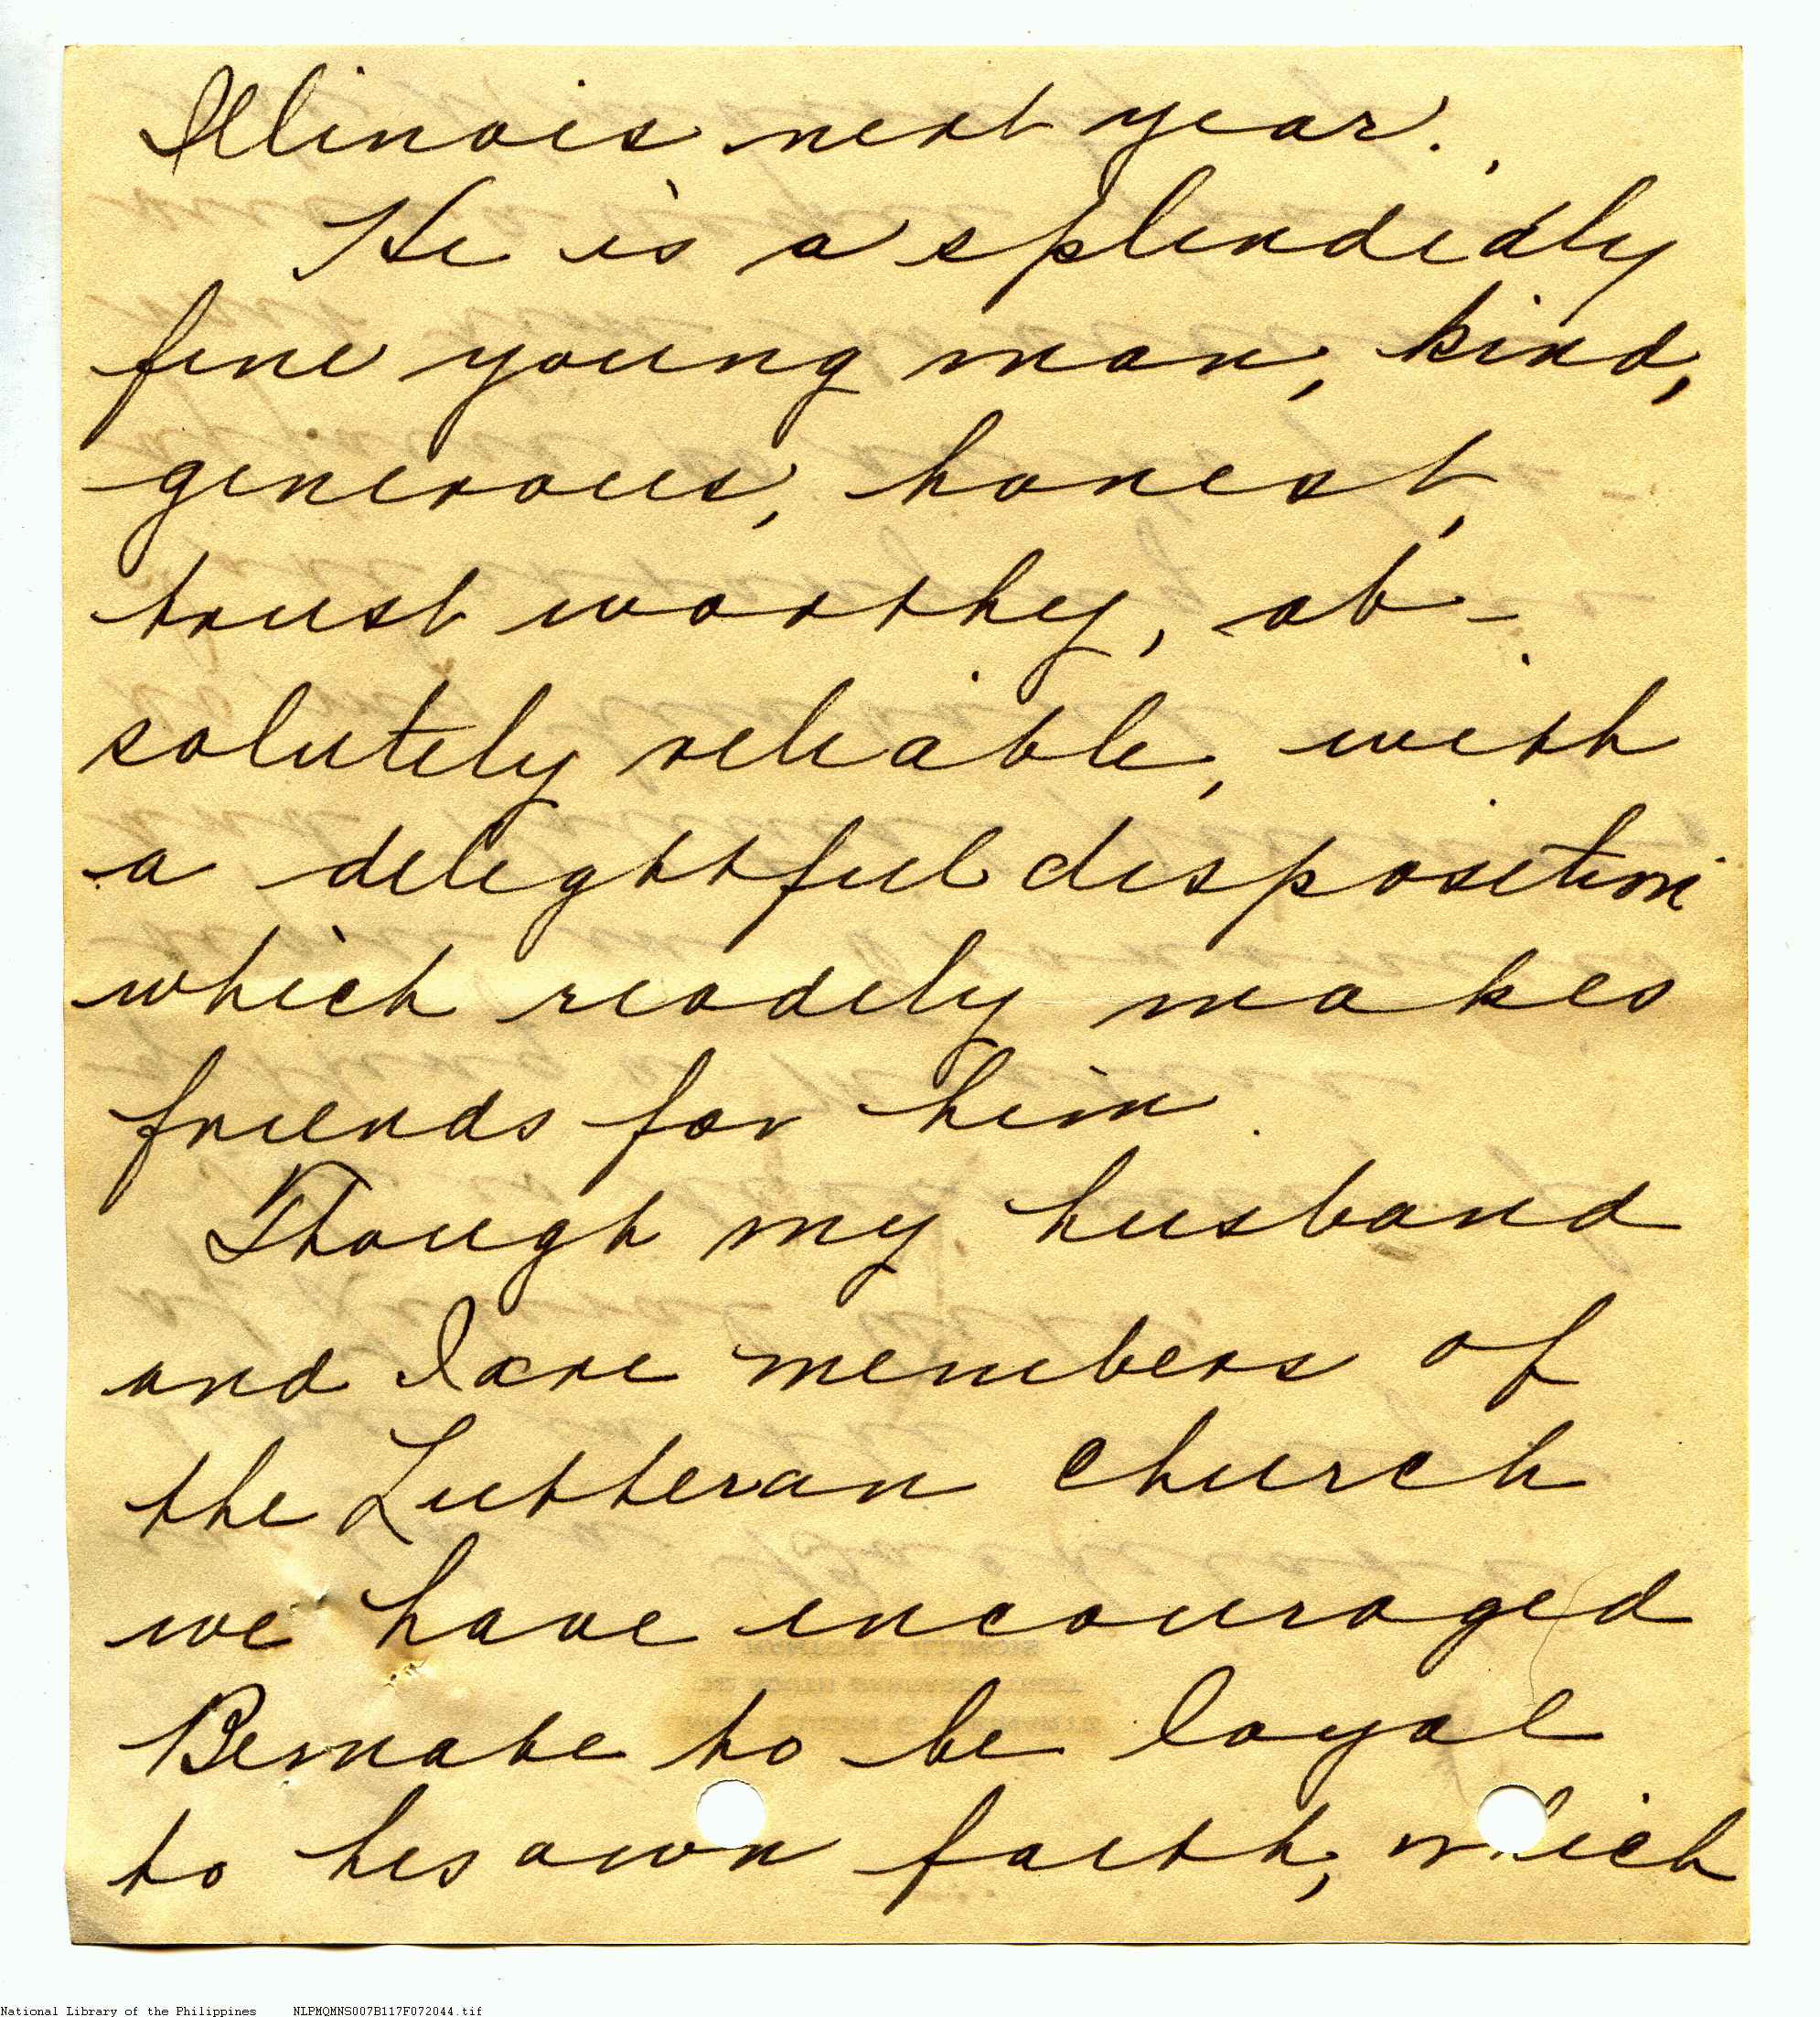 Illinois next year.
He is a splendidly
fine young man, kind,
generous, honest,
trust worthy, ab-
solutely reliable, with
a delightful disposition
which readily makes
friends for him.
Though my husband
and I are members of
the Lutheran church
we have encouraged
Bernabe to be loyal
to his own faith, which
National Library of the Philippines NLPMQMNS007B117F072044.tif